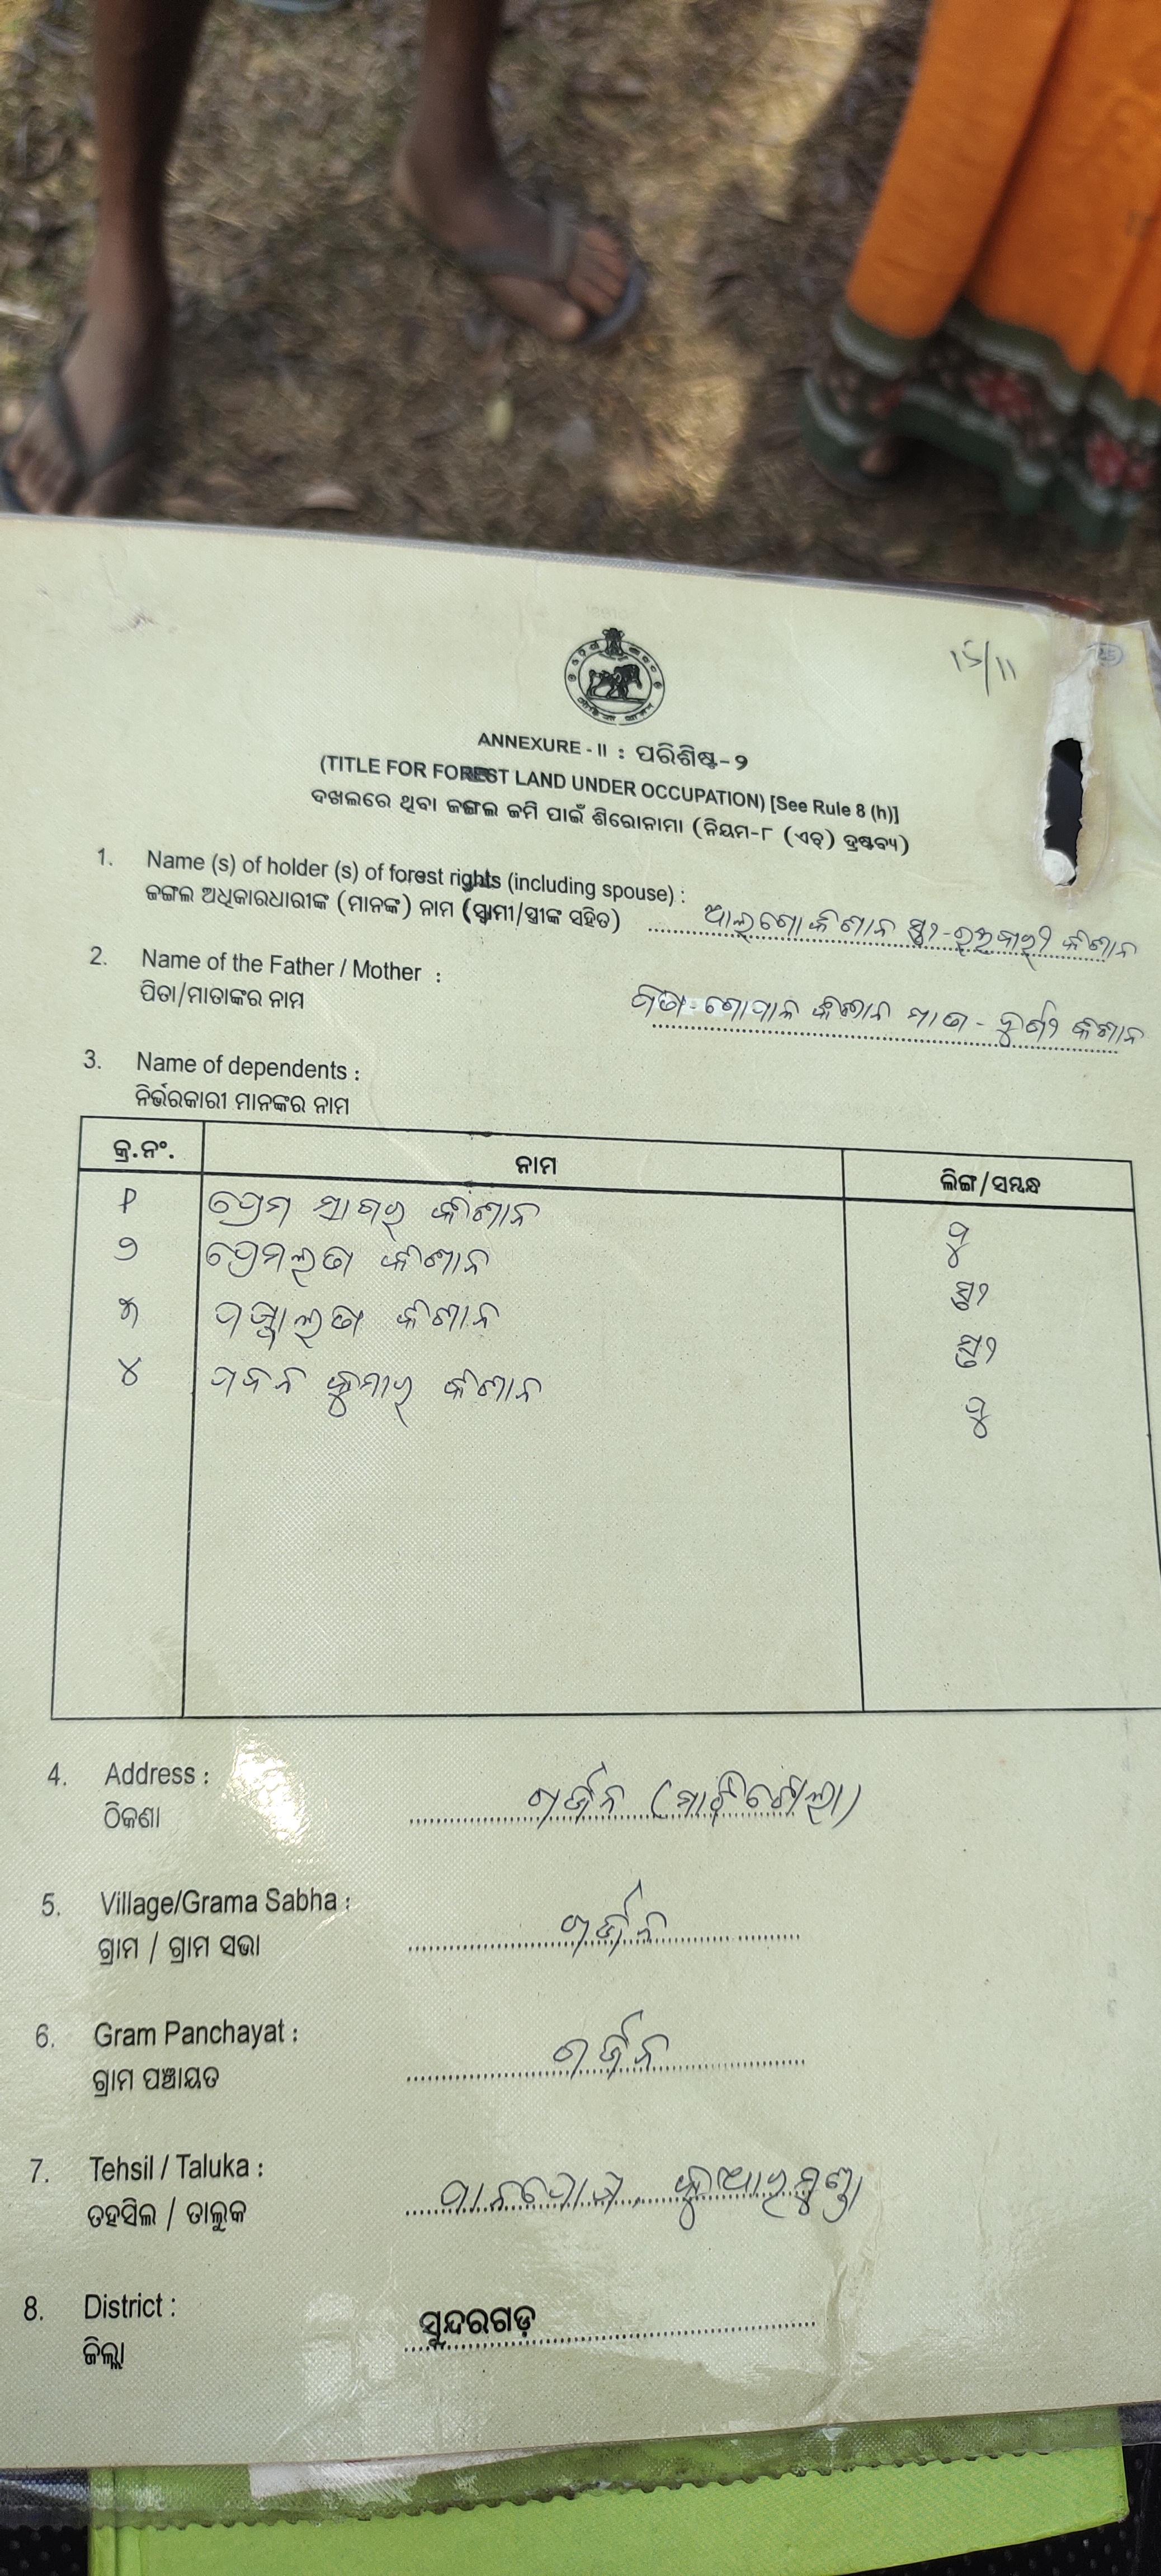 15/11
25
ANNEXURE - II : ପରିଶିଷ୍ଟ-୨
(TITLE FOR FOREST LAND UNDER OCCUPATION) [See Rule 8 (h)]
ଦଖଲରେ ଥିବା ଜଙ୍ଗଲ ଜମି ପାଇଁ ଶିରୋନାମା (ନିୟମ-୮ (ଏଚ୍) ଦ୍ରଷ୍ଟବ୍ୟ)
1. Name (s) of holder (s) of forest rights (including spouse) :
ଜଙ୍ଗଲ ଅଧିକାରଧାରୀଙ୍କ (ମାନଙ୍କ) ନାମ (ସ୍ୱାମୀ/ସ୍ତ୍ରୀଙ୍କ ସହିତ) କିଶାନ ସ୍ତ୍ରୀ- କିଶାନ
2. Name of the Father / Mother :
ପିତା/ମାତାଙ୍କର ନାମ ପିତା-ଗୋପାଳ କିଶାନ ମାତା- କିଶାନ
3. Name of dependents :
ନିର୍ଭରକାରୀ ମାନଙ୍କର ନାମ
କ୍ର.ନଂ. ନାମ ଲିଙ୍ଗ/ସମ୍ବନ୍ଧ
୧ ପ୍ରେମ ସାଗର କିଶାନ ପୁ
୨ ପ୍ରେମଲତା କିଶାନ ସ୍ତ୍ରୀ
୩ କିଶାନ ସ୍ତ୍ରୀ
୪ ପବନ କୁମାର କିଶାନ ପୁ
4. Address :
ଠିକଣା ଗର୍ଜନ
5. Village/Grama Sabha :
ଗ୍ରାମ / ଗ୍ରାମ ସଭା ଗର୍ଜନ
6. Gram Panchayat :
ଗ୍ରାମ ପଞ୍ଚାୟତ ଗର୍ଜନ
7. Tehsil / Taluka :
ତହସିଲ / ତାଲୁକ ପାନପୋଷ, କୁଆରମୁଣ୍ଡା
8. District :
ଜିଲ୍ଲା ସୁନ୍ଦରଗଡ଼